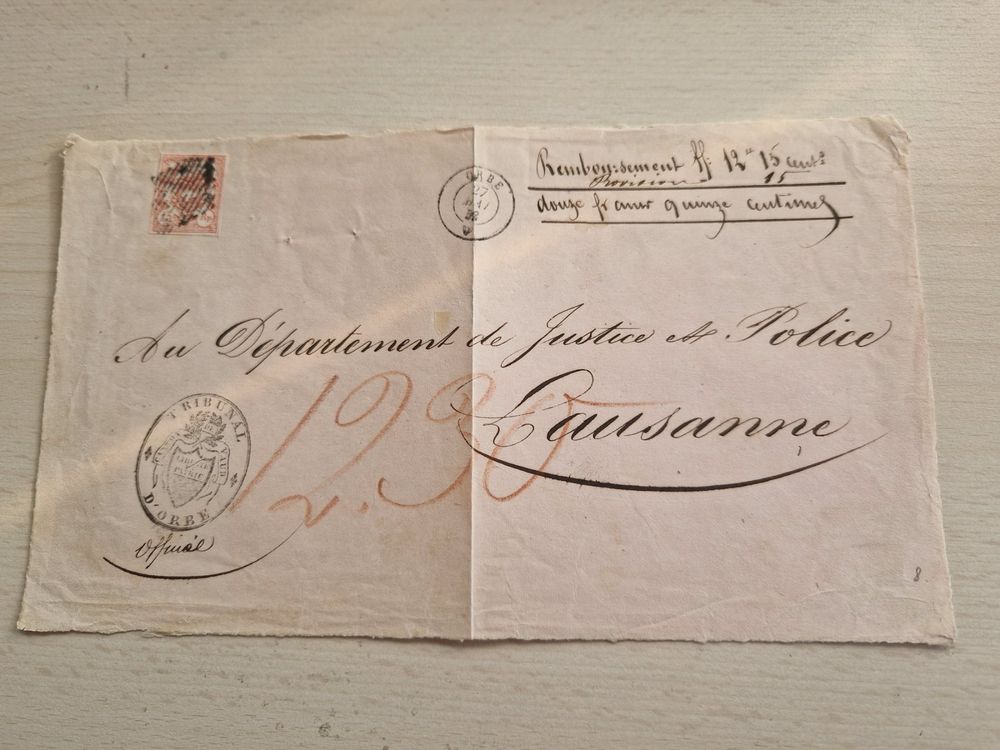 Remboursement ff. 12" 15 cent.s
Provision 15
douze francs quinze centimes
ORBE
27
MAI
Au Département de Justice et Police
Lausanne
12.30
TRIBUNAL
CANTON DE VAUD
LIBERTÉ
PATRIE
D'ORBE
Officiel
8.